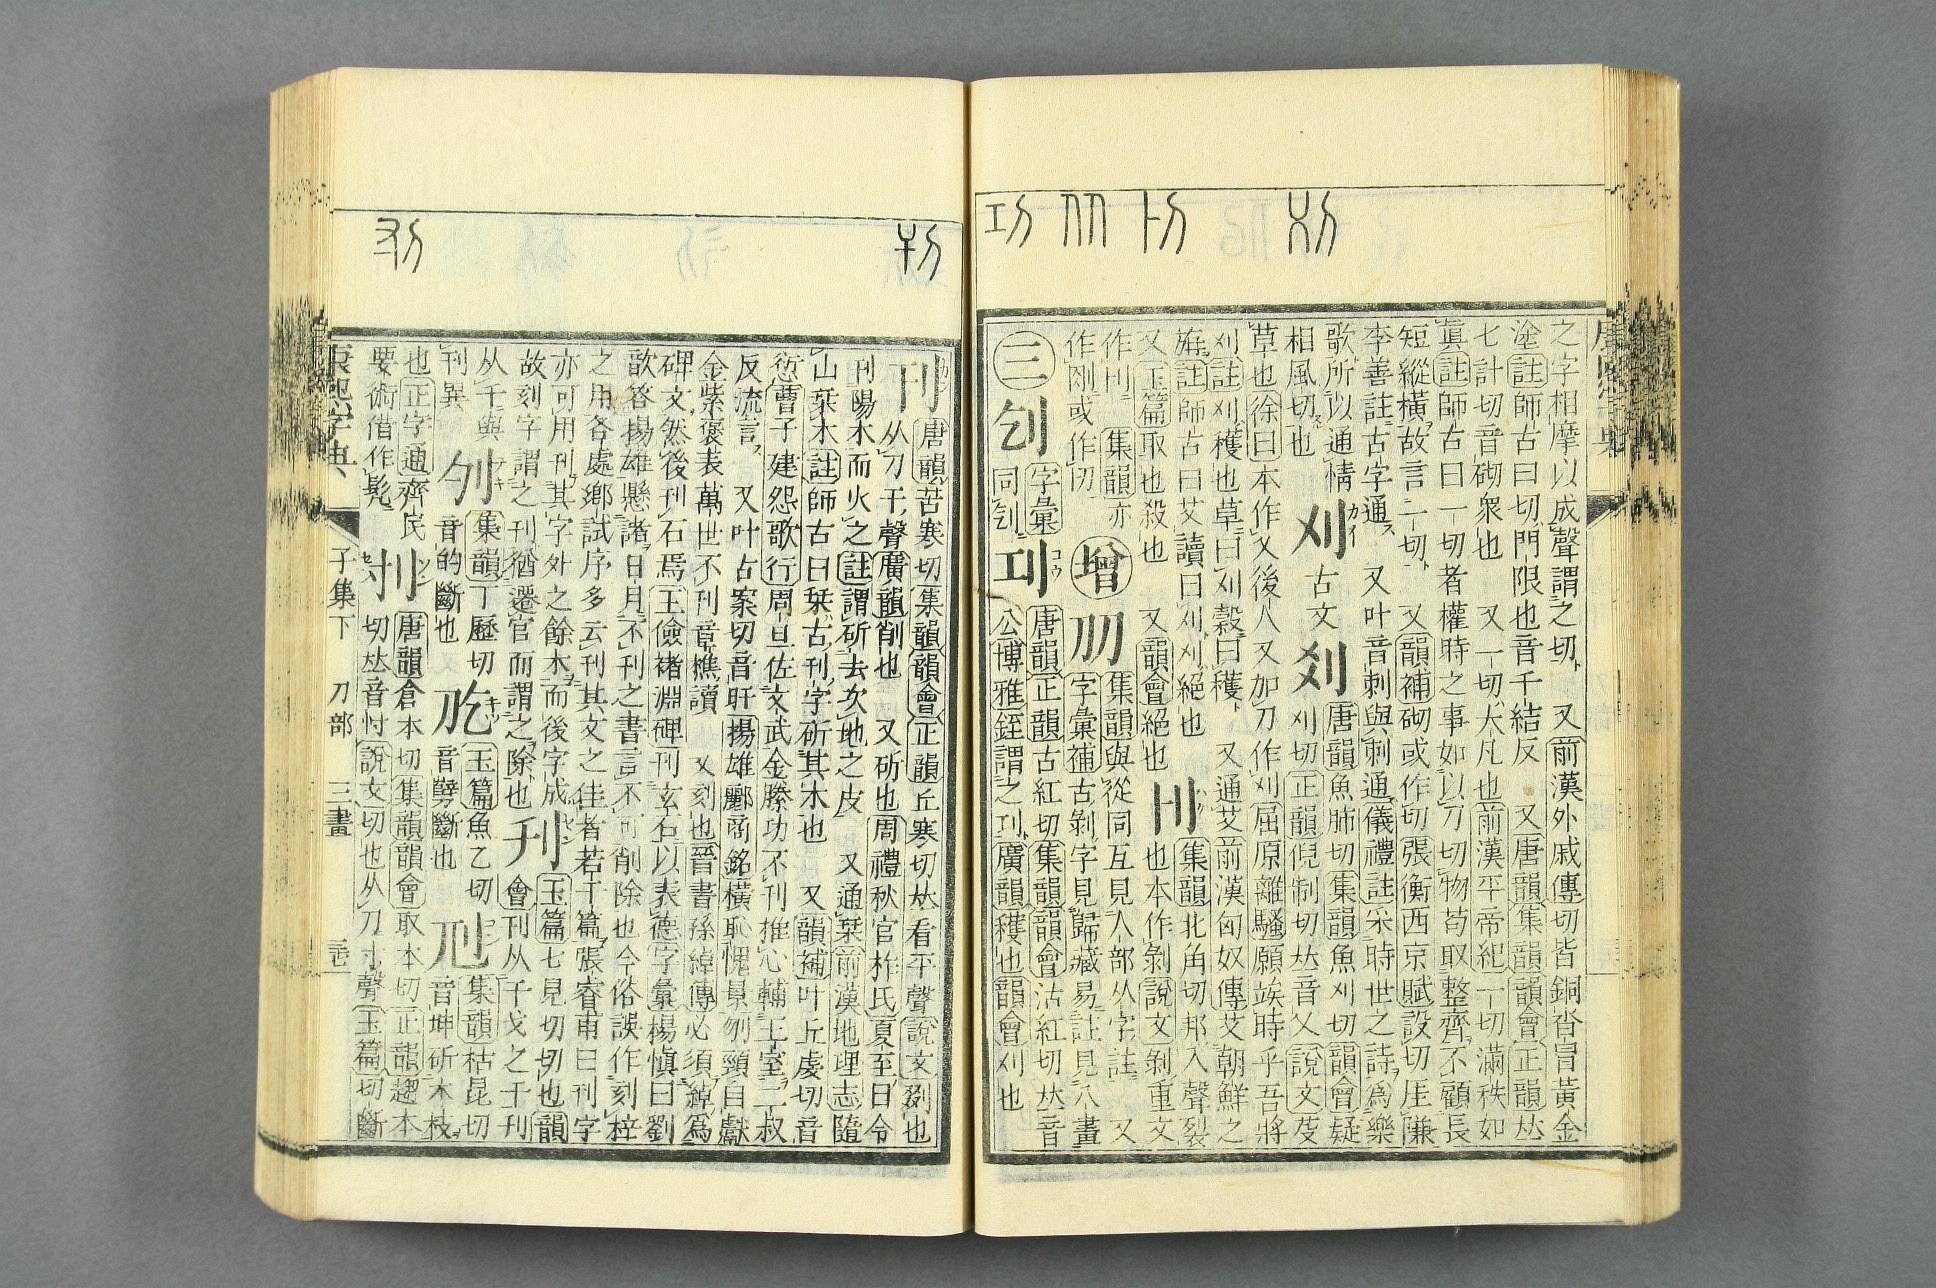 之字相摩以成聲謂之切 又前漢外戚傳切皆銅沓冒黃金
塗註師古曰切門限也音千結反 又唐韻集韻韻會正韻𠀤
七計切音砌衆也 又一切大凡也前漢平帝紀一切滿秩如
眞註師古曰一切者權時之事如以刀切物苟取整齊不顧長
短縱橫故言一切 又韻補砌或作切張衡西京賦設切厓隒
李善註古字通 又叶音刺與刺通儀禮註宋時世之詩爲樂
歌所以通情
相風切也
刈 カイ 古文
唐韻魚肺切集韻魚刈切韻會疑
刈切正韻倪制切𠀤音乂說文芟
草也徐曰本作乂後人又加刀作刈屈原離騷願竢時乎吾將
刈註刈穫也草曰刈穀曰穫 又通艾前漢匈奴傳艾朝鮮之
旃註師古曰艾讀曰刈刈絕也
又玉篇取也殺也 又韻會絕也
刂
集韻北角切邦入聲裂
也本作剝說文剝重文
作刂 集韻亦
作刚或作㓛
增
刕
集韻與從同互見人部从字註 又
字彙補古剝字見歸藏易註見八畫
三
刉
字彙
同刏
㓚 コウ
唐韻正韻古紅切集韻韻會沽紅切𠀤音
公博雅銍謂之㓚廣韻穫也韻會刈也
刊 カン
唐韻苦寒切集韻韻會正韻丘寒切𠀤看平聲說文剟也
从刀干聲廣韻削也 又斫也周禮秋官柞氏夏至日令
刊陽木而火之註謂斫去次地之皮 又通栞前漢地理志隨
山栞木註師古曰栞古刊字斫其木也 又韻補叶丘虔切音
愆曹子建怨歌行周旦佐文武金縢功不刊推心輔王室二叔
反流言 又叶占案切音旰揚雄酈商銘橫恥愧景刎頸自獻
金紫褒表萬世不刊音樵讀 又刻也晉書孫綽傳必須綽爲
碑文然後刊石焉王儉褚淵碑刊玄石以表德字彙楊愼曰劉
歆答揚雄懸諸日月不刊之書言不可削除也今俗誤作刻梓
之用各處鄉試序多云刊其文之佳者若干篇張睿甫曰刊字
亦可用刊其字外之餘木而後字成
故刻字謂之刊猶遷官而謂之除也
刋 セン
玉篇七見切切也韻
會刊从干戈之干刋
从千與
刊異
刢
集韻丁歷切
音的斷也
㓙
玉篇魚乙切
音孽斷也
集韻枯昆切
音坤斫木枝
也正字通齊民
要術借作髡
刌 ソン
唐韻倉本切集韻韻會取本切正韻趨本
切𠀤音忖說文切也从刀寸聲玉篇切斷
康熙字典
子集下 刀部 三畫